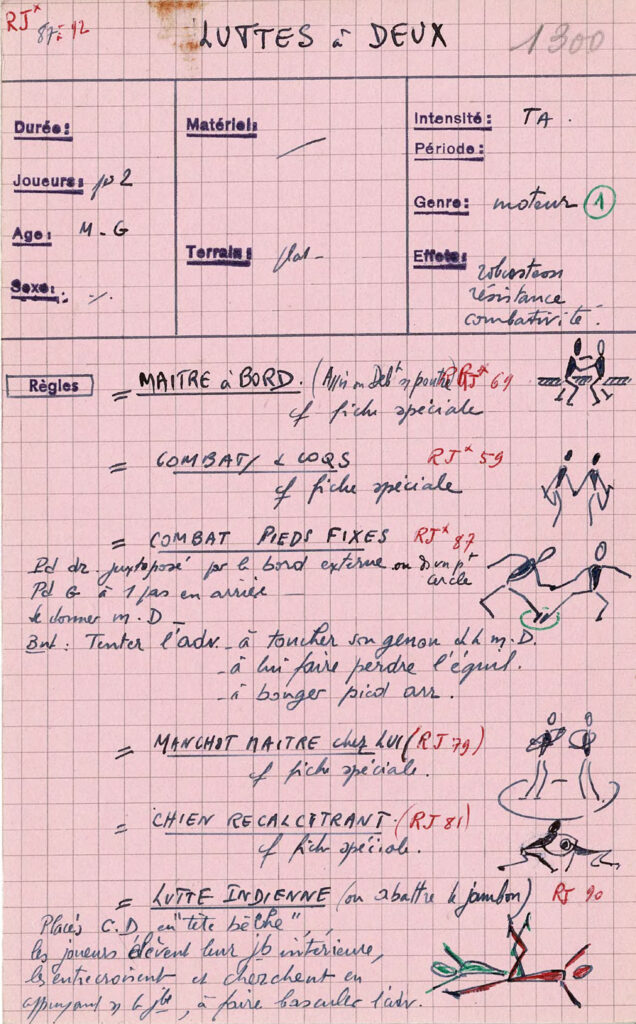 RJ* 87 à 92
LUTTES à DEUX
1300
Durée:
Joueurs: pr 2
Age: M - G
Sexe: ./.
Matériel: /
Terrain: plat -
Intensité: TA.
Période:
Genre: moteur 1
Effets: robustesse
résistance
combativité.
Règles
= MAITRE à BORD. (Assis ou Debt s/ poutre) RJ* 69
cf fiche spéciale
= COMBAT COQS RJ* 59
cf fiche spéciale
= COMBAT PIEDS FIXES RJ* 87
Pd dr. juxtaposé par le bord externe ou ds un pt
cercle
Pd G à 1 pas en arrière
se donner m. D -
But: Tenter l'adv. - à toucher son genou d la m. D.
- à lui faire perdre l'équil.
- à bouger pied arr.
= MANCHOT MAITRE chez LUI (RJ 79)
cf fiche spéciale.
= CHIEN RECALCITRANT. (RJ 81)
cf fiche spéciale.
= LUTTE INDIENNE (ou abattre le jambon) RJ 90
Placés C.D en "tête bêche",
les joueurs élèvent leur jb intérieure,
les entrecroisent et cherchent en
appuyant s/ la jbe, à faire basculer l'adv.